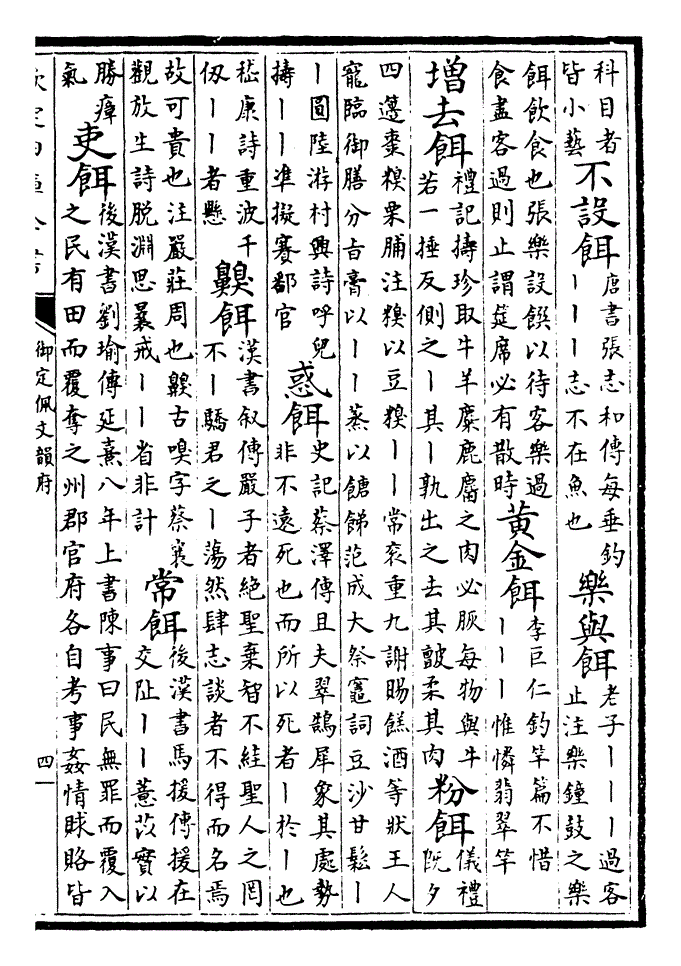 科目者
皆小藝
不設餌
唐書張志和傳每垂釣
丨丨丨志不在魚也
樂與餌
老子丨丨丨過客
止注樂鐘鼓之樂
餌飲食也張樂設饌以待客樂過
食盡客過則止謂筵席必有散時
黃金餌
李巨仁釣竿篇不惜
丨丨丨惟憐翡翠竿
增去餌
禮記擣珍取牛羊麋鹿麕之肉必脄每物與牛
若一捶反側之丨其丨孰出之去其皽柔其肉
粉餌
儀禮
既夕
四籩棗糗栗脯注糗以豆糗丨丨常衮重九謝賜餻酒等狀王人
寵臨御膳分旨膏以丨丨蒸以餹范成大祭竈詞豆沙甘鬆丨
丨圓陸游村興詩呼兒
擣丨丨凖擬賽都官
惑餌
史記蔡澤傳且夫翠鵠犀象其處勢
非不遠死也而所以死者丨於丨也
嵇康詩重波千
仭丨丨者懸
齅餌
漢書叙傳嚴子者絶聖棄智不絓聖人之罔
不丨驕君之丨蕩然肆志談者不得而名焉
故可貴也注嚴莊周也齅古嗅字蔡襄
觀放生詩脫淵思曩戒丨丨省非計
常餌
後漢書馬援傳援在
交阯丨丨薏苡實以
勝瘴
氣
吏餌
後漢書劉瑜傳延熹八年上書陳事曰民無罪而覆入
之民有田而覆奪之州郡官府各自考事姦情賕賂皆
御定佩文韻府
四